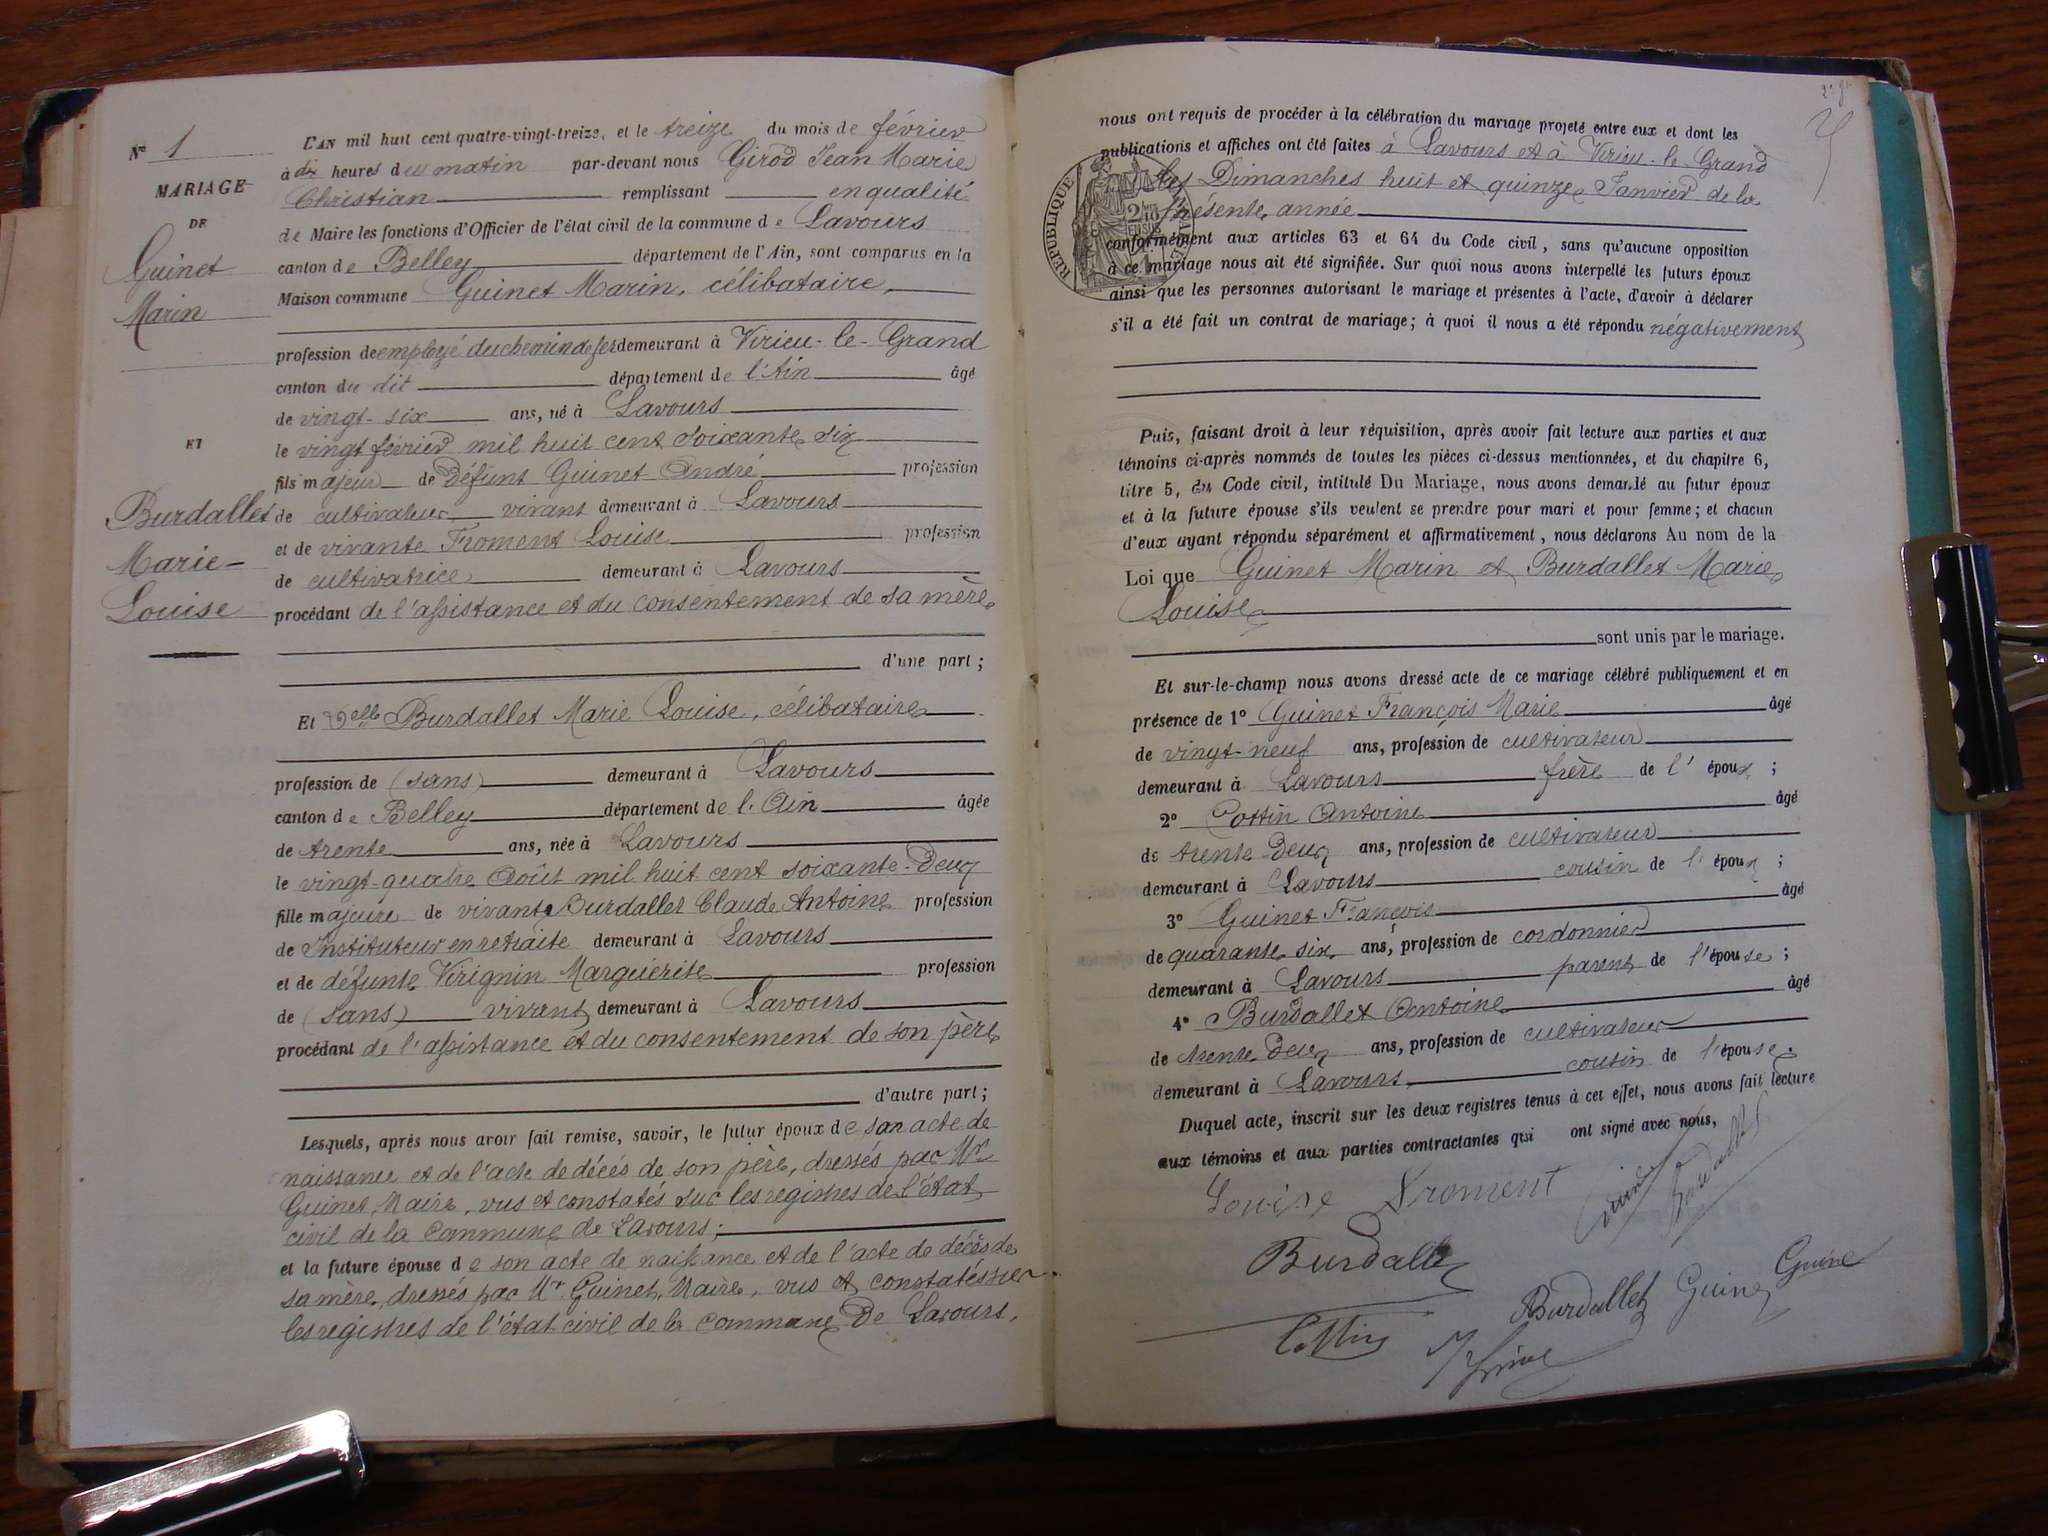 N° 1
MARIAGE
DE
Guinet
Marin
ET
Burdallet
Marie-
Louise
L'AN mil huit cent quatre-vingt-treize, et le treize du mois de février
à dix heures du matin par-devant nous Girod Jean Marie
Christian remplissant en qualité
de Maire les fonctions d'Officier de l'état civil de la commune de Lavours
canton de Belley département de l'Ain, sont comparus en la
Maison commune Guinet Marin, célibataire,
profession de employé du chemin de fer demeurant à Virieu-le-Grand
canton du dit département de l'Ain âgé
de vingt-six ans, né à Lavours
le vingt février mil huit cent soixante six
fils majeur de défunt Guinet André profession
de cultivateur vivant demeurant à Lavours
et de vivante Froment Louise profession
de cultivatrice demeurant à Lavours
procédant de l'assistance et du consentement de sa mère
d'une part ;
Et Delle Burdallet Marie Louise, célibataire
profession de (sans) demeurant à Lavours
canton de Belley département de l'Ain âgée
de trente ans, née à Lavours
le vingt-quatre Août mil huit cent soixante-deux
fille majeure de vivant Burdallet Claude Antoine profession
de Instituteur en retraite demeurant à Lavours
et de défunte Virignin Marguerite profession
de (sans) vivant demeurant à Lavours
procédant de l'assistance et du consentement de son père
d'autre part ;
Lesquels, après nous avoir fait remise, savoir, le futur époux de son acte de
naissance et de l'acte de décés de son père, dressés par Mr
Guinet, Maire, vus et constatés sur les registres de l'état
civil de la commune de Lavours ;
et la future épouse de son acte de naissance et de l'acte de décès de
sa mère, dressés par Mr Guinet, Maire, vus et constatés sur
les registres de l'état civil de la commune De Lavours.
nous ont requis de procéder à la célébration du mariage projeté entre eux et dont les
publications et affiches ont été faites à Lavours et à Virieu-le-Grand
les Dimanches huit et quinze Janvier de la
présente année
conformément aux articles 63 et 64 du Code civil, sans qu'aucune opposition
à ce mariage nous ait été signifiée. Sur quoi nous avons interpellé les futurs époux
ainsi que les personnes autorisant le mariage et présentes à l'acte, d'avoir à déclarer
s'il a été fait un contrat de mariage ; à quoi il nous a été répondu négativement
Puis, faisant droit à leur réquisition, après avoir fait lecture aux parties et aux
témoins ci-après nommés de toutes les pièces ci-dessus mentionnées, et du chapitre 6,
titre 5, du Code civil, intitulé Du Mariage, nous avons demandé au futur époux
et à la future épouse s'ils veulent se prendre pour mari et pour femme ; et chacun
d'eux ayant répondu séparément et affirmativement, nous déclarons Au nom de la
Loi que Guinet Marin et Burdallet Marie
Louise
sont unis par le mariage.
Et sur-le-champ nous avons dressé acte de ce mariage célébré publiquement et en
présence de 1° Guinet François Marie âgé
de vingt-neuf ans, profession de cultivateur
demeurant à Lavours frère de l'époux ;
2° Cottin Antoine âgé
de trente deux ans, profession de cultivateur
demeurant à Lavours cousin de l'époux ;
3° Guinet François âgé
de quarante six ans, profession de cordonnier
demeurant à Lavours parent de l'épouse ;
4° Burdallet Antoine âgé
de trente deux ans, profession de cultivateur
demeurant à Lavours cousin de l'épouse.
Duquel acte, inscrit sur les deux registres tenus à cet effet, nous avons fait lecture
aux témoins et aux parties contractantes qui ont signé avec nous,
Louise Froment
Burdallet
Burdallet Guinet Guinet
Cottin